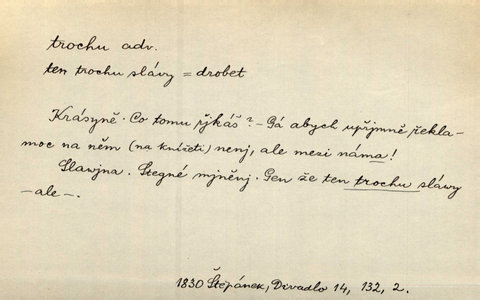 trochu adv.
ten trochu slávy = drobet
Krásyně. Co tomu řjkáš? - Gá abych upřjmně řekla -
moc na něm (na knížeti) nenj, ale mezi náma!
Slawjna. Stegné mjněnj. Gen že ten trochu slávy
- ale -.
1830 Štěpánek, Divadlo 14, 132, 2.